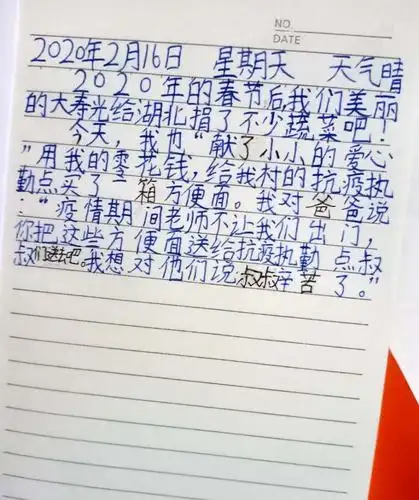 NO.
DATE
2020年2月16日 星期天 天气晴
2020年的春节后,我们美丽
的大寿光给湖北捐了不少蔬菜吧!
今天,我也"献了小小的爱心
"用我的零花钱,给我村的抗疫执
勤点买了一箱方便面。我对爸爸说
:"疫情期间老师不让我们出门,
你把这些方便面送给抗疫执勤点叔
叔们送去吧。我想对他们说叔叔辛苦了。"